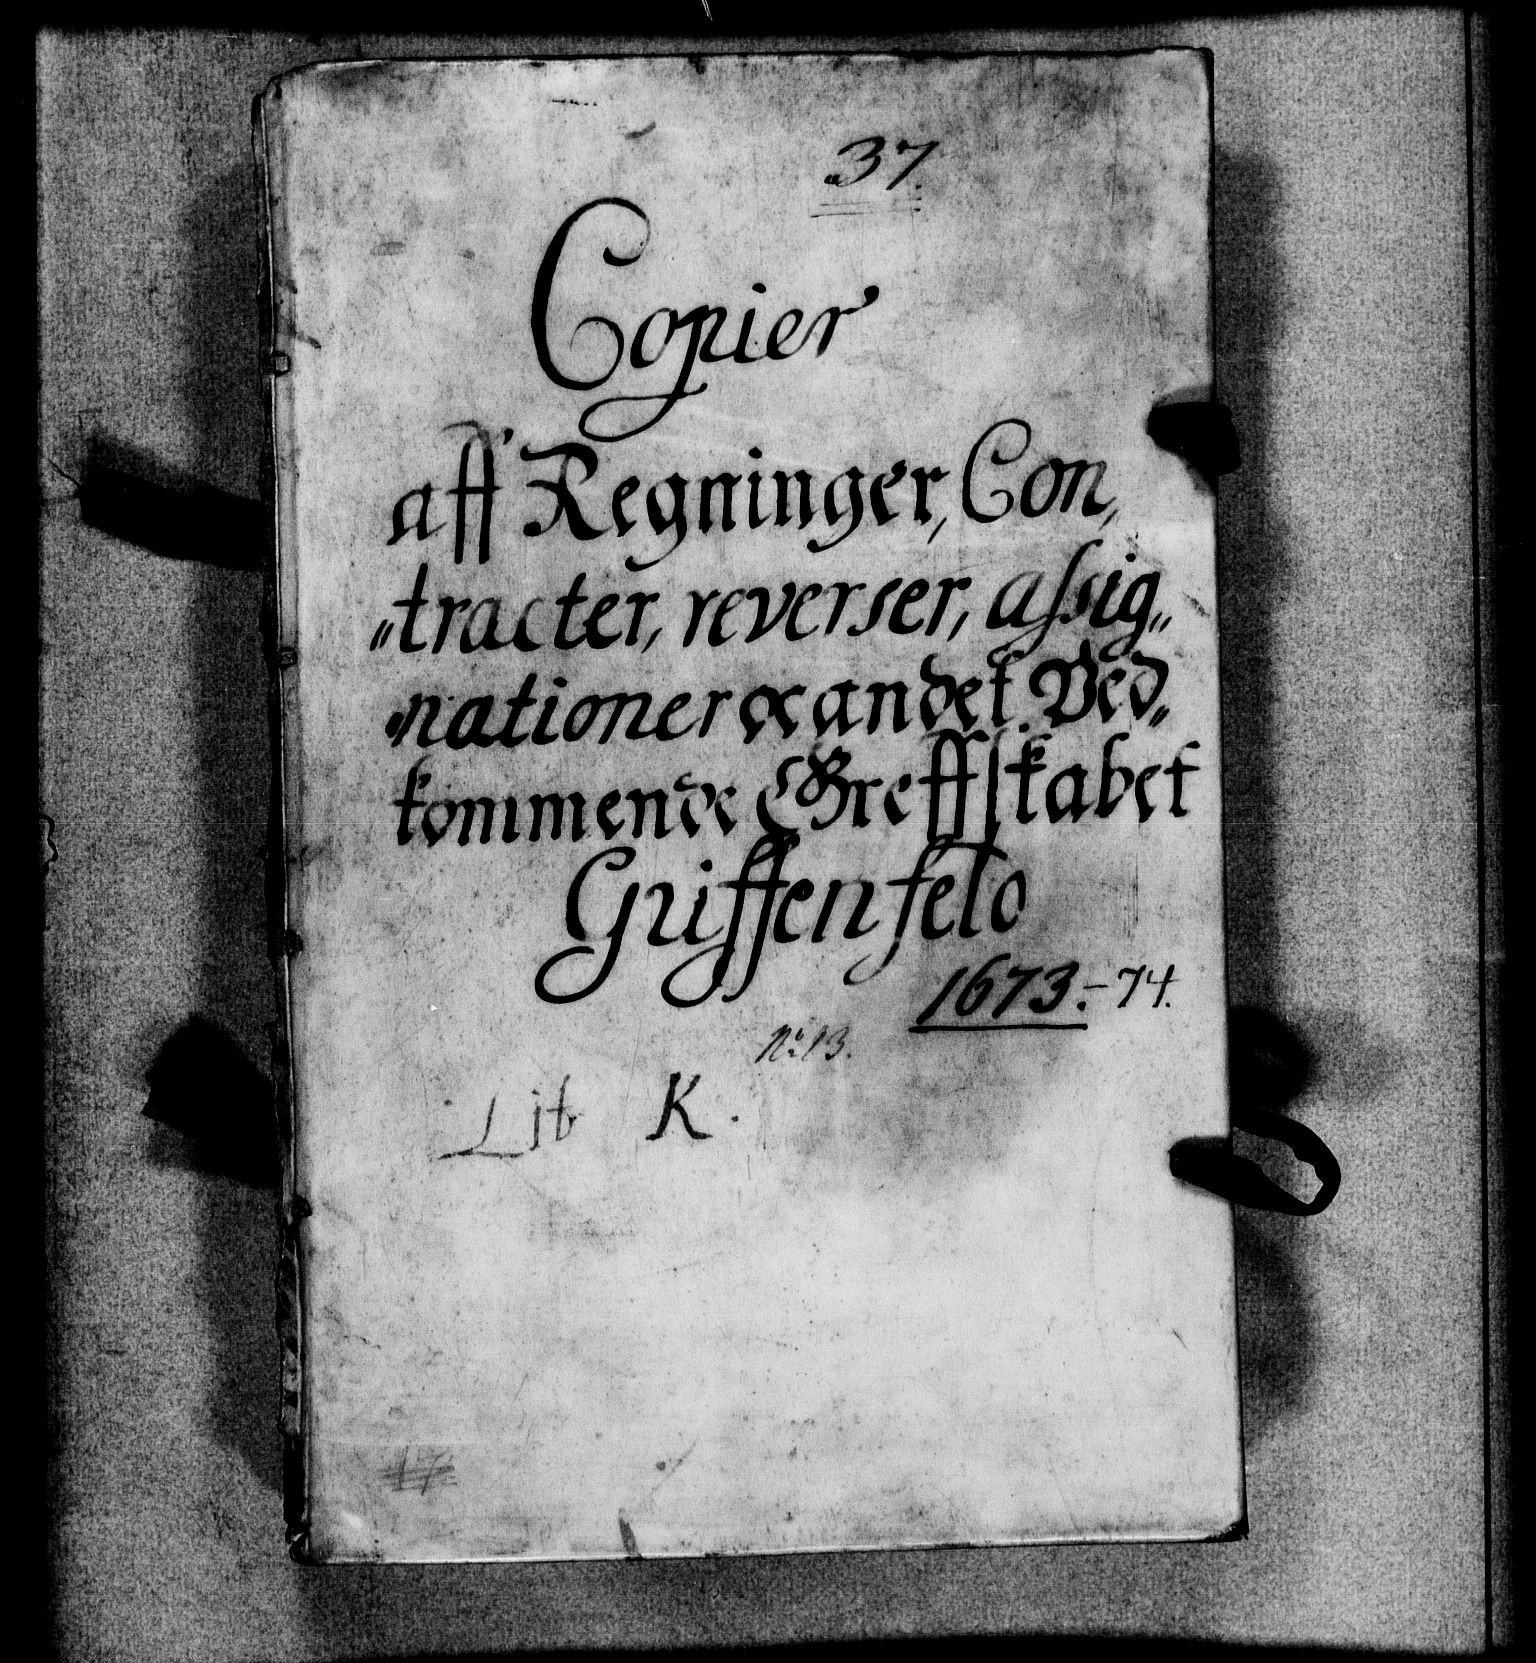 37.
Copier
aff Regninger, Con,
„tracter, reverser, assig„
„nationer oc andet Ved„
kommende Greffskabet
Griffenfeld
1673.-74.
No. 13.
Lit K.
17